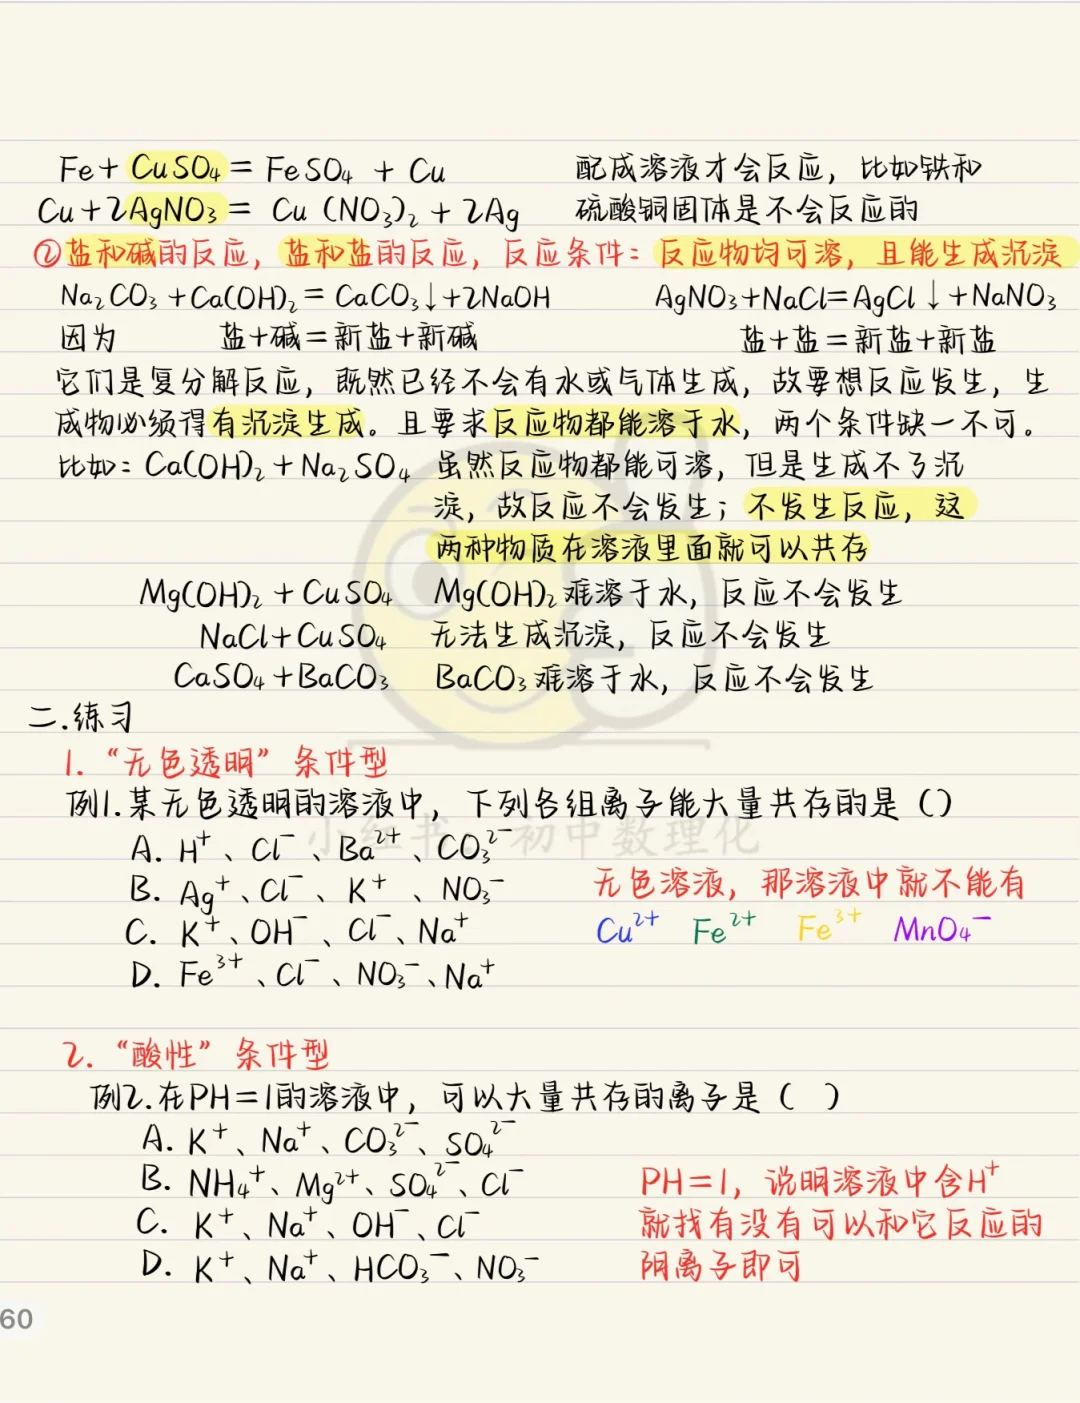 Fe+CuSO₄=FeSO₄+Cu 配成溶液才会反应，比如铁和
Cu+2AgNO₃=Cu(NO₃)₂+2Ag 硫酸铜固体是不会反应的
②盐和碱的反应，盐和盐的反应，反应条件：反应物均可溶，且能生成沉淀
Na₂CO₃+Ca(OH)₂=CaCO₃↓+2NaOH AgNO₃+NaCl=AgCl↓+NaNO₃
因为 盐+碱=新盐+新碱 盐+盐=新盐+新盐
它们是复分解反应，既然已经不会有水或气体生成，故要想反应发生，生
成物必须得有沉淀生成。且要求反应物都能溶于水，两个条件缺一不可。
比如：Ca(OH)₂+Na₂SO₄ 虽然反应物都能可溶，但是生成不了沉
淀，故反应不会发生；不发生反应，这
两种物质在溶液里面就可以共存
Mg(OH)₂+CuSO₄ Mg(OH)₂难溶于水，反应不会发生
NaCl+CuSO₄ 无法生成沉淀，反应不会发生
CaSO₄+BaCO₃ BaCO₃难溶于水，反应不会发生
二.练习
1.“无色透明”条件型
例1.某无色透明的溶液中，下列各组离子能大量共存的是（）
小红书：初中数理化
A. H⁺、Cl⁻、Ba²⁺、CO₃²⁻
B. Ag⁺、Cl⁻、K⁺、NO₃⁻ 无色溶液，那溶液中就不能有
C. K⁺、OH⁻、Cl⁻、Na⁺ Cu²⁺ Fe²⁺ Fe³⁺ MnO₄⁻
D. Fe³⁺、Cl⁻、NO₃⁻、Na⁺
2.“酸性”条件型
例2.在PH=1的溶液中，可以大量共存的离子是（ ）
A. K⁺、Na⁺、CO₃²⁻、SO₄²⁻
B. NH₄⁺、Mg²⁺、SO₄²⁻、Cl⁻ PH=1，说明溶液中含H⁺
C. K⁺、Na⁺、OH⁻、Cl⁻ 就找有没有可以和它反应的
D. K⁺、Na⁺、HCO₃⁻、NO₃⁻ 阴离子即可
60